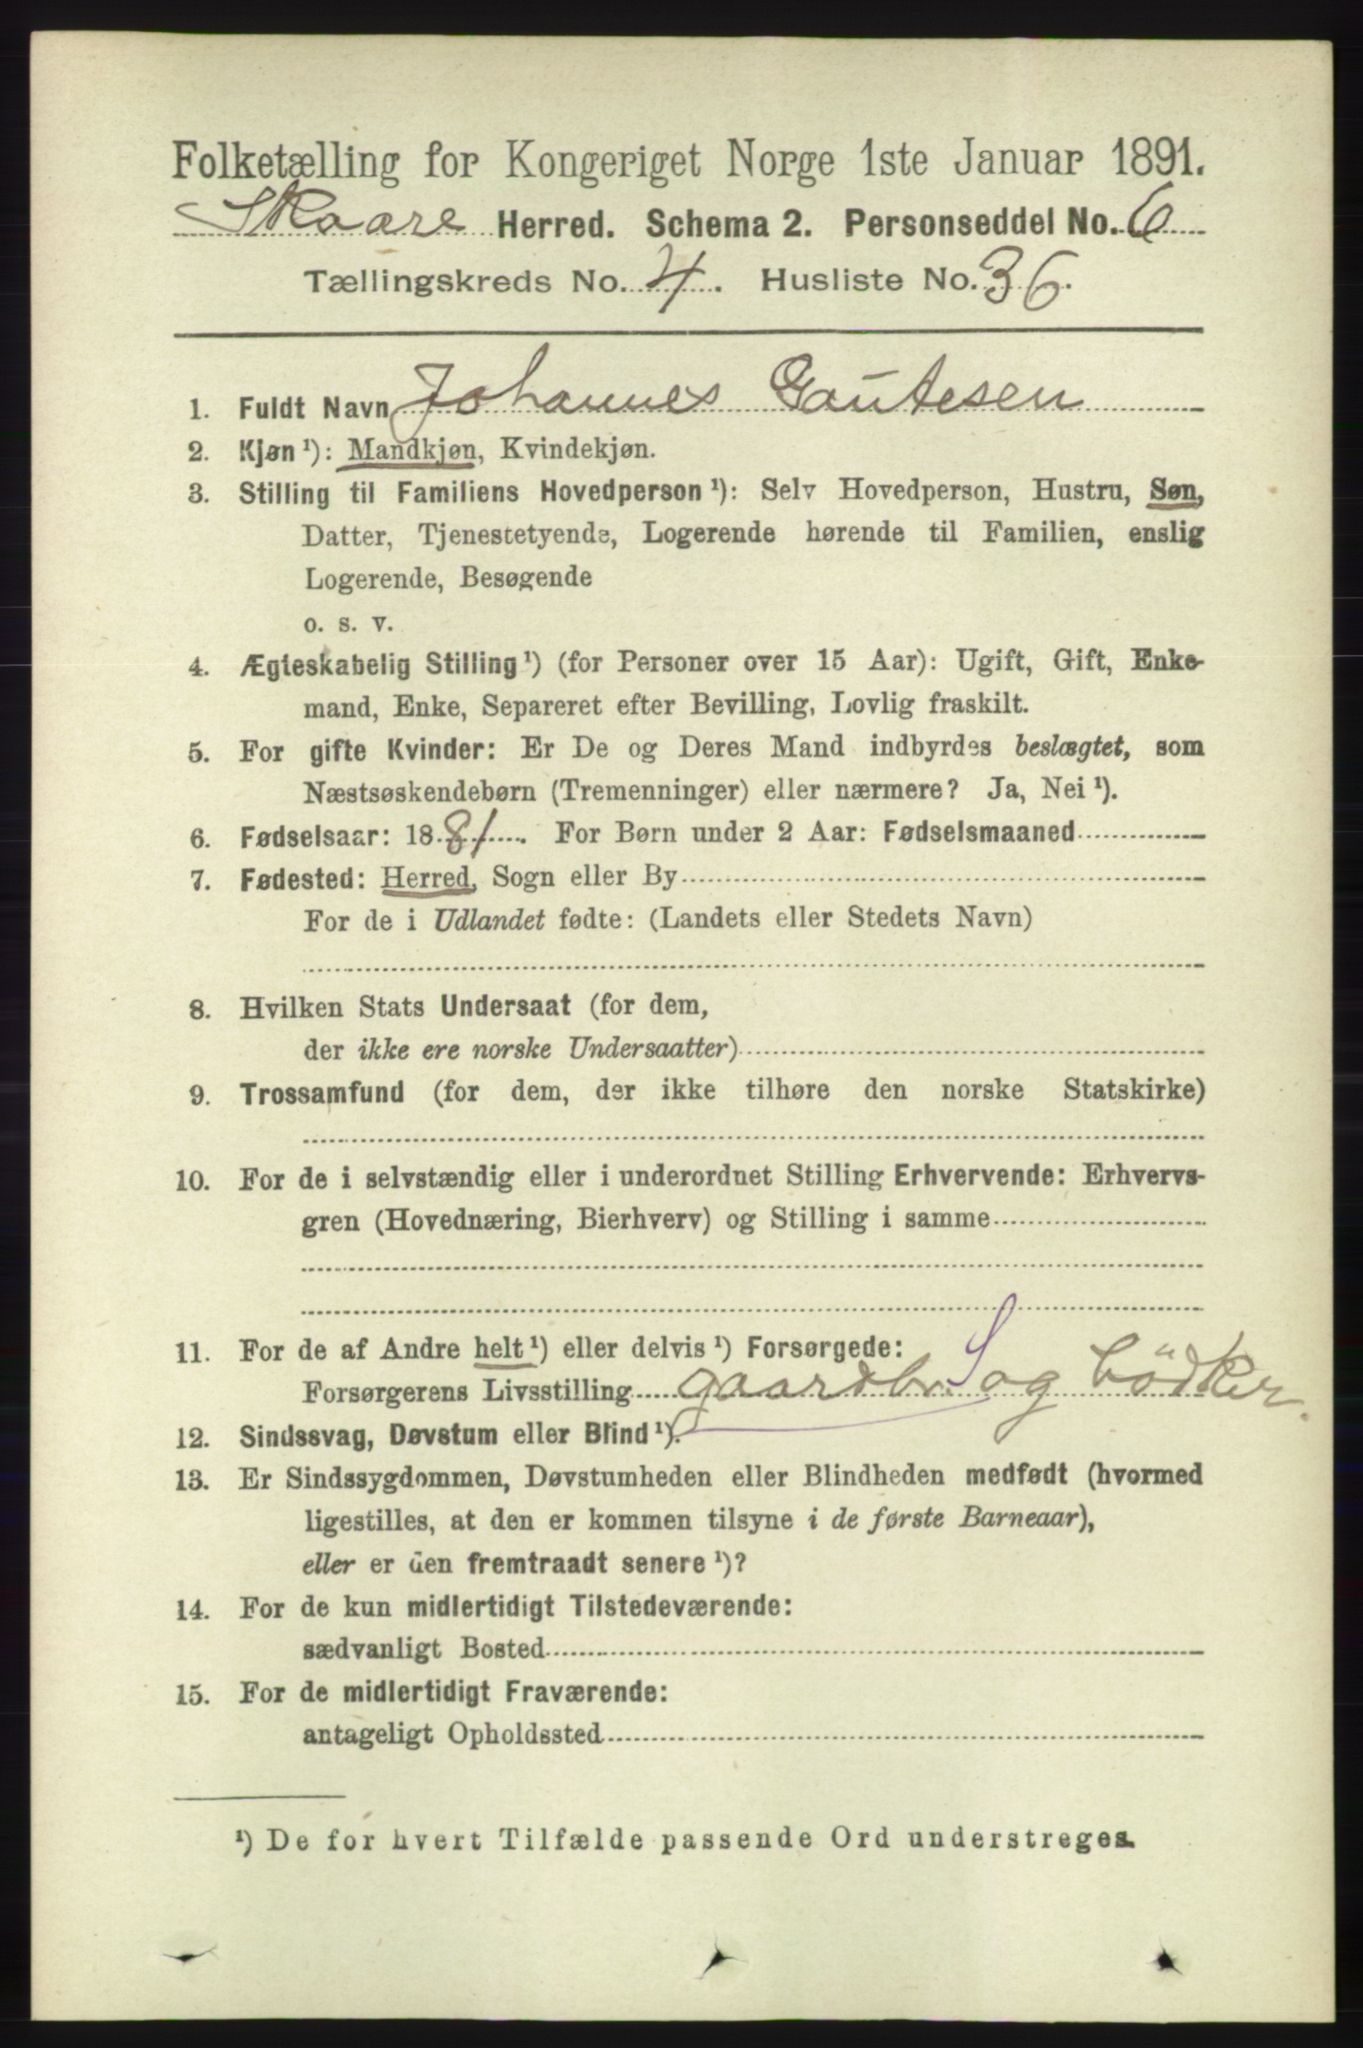 Folketælling for Kongeriget Norge 1ste Januar 1891.
Skaare Herred. Schema 2. Personseddel No. 6
Tællingskreds No. 4. Husliste No. 36.
1. Fuldt Navn Johannes Gautesen
2. Kjøn ¹): Mandkjøn, Kvindekjøn.
3. Stilling til Familiens Hovedperson ¹): Selv Hovedperson, Hustru, Søn,
Datter, Tjenestetyende, Logerende hørende til Familien, enslig
Logerende, Besøgende
o. s. v.
4. Ægteskabelig Stilling ¹) (for Personer over 15 Aar): Ugift, Gift, Enke-
mand, Enke, Separeret efter Bevilling, Lovlig fraskilt.
5. For gifte Kvinder: Er De og Deres Mand indbyrdes beslægtet, som
Næstsøskendebørn (Tremenninger) eller nærmere? Ja, Nei ¹).
6. Fødselsaar: 1881. For Børn under 2 Aar: Fødselsmaaned
7. Fødested: Herred, Sogn eller By
For de i Udlandet fødte: (Landets eller Stedets Navn)
8. Hvilken Stats Undersaat (for dem,
der ikke ere norske Undersaatter)
9. Trossamfund (for dem, der ikke tilhøre den norske Statskirke)
10. For de i selvstændig eller i underordnet Stilling Erhvervende: Erhvervs-
gren (Hovednæring, Bierhverv) og Stilling i samme
11. For de af Andre helt ¹) eller delvis ¹) Forsørgede:
Forsørgerens Livsstilling gaardbr. S og bödker.
12. Sindssvag, Døvstum eller Blind ¹).
13. Er Sindssygdommen, Døvstumheden eller Blindheden medfødt (hvormed
ligestilles, at den er kommen tilsyne i de første Barneaar),
eller er den fremtraadt senere ¹)?
14. For de kun midlertidigt Tilstedeværende:
sædvanligt Bosted
15. For de midlertidigt Fraværende:
antageligt Opholdssted
¹) De for hvert Tilfælde passende Ord understreges.